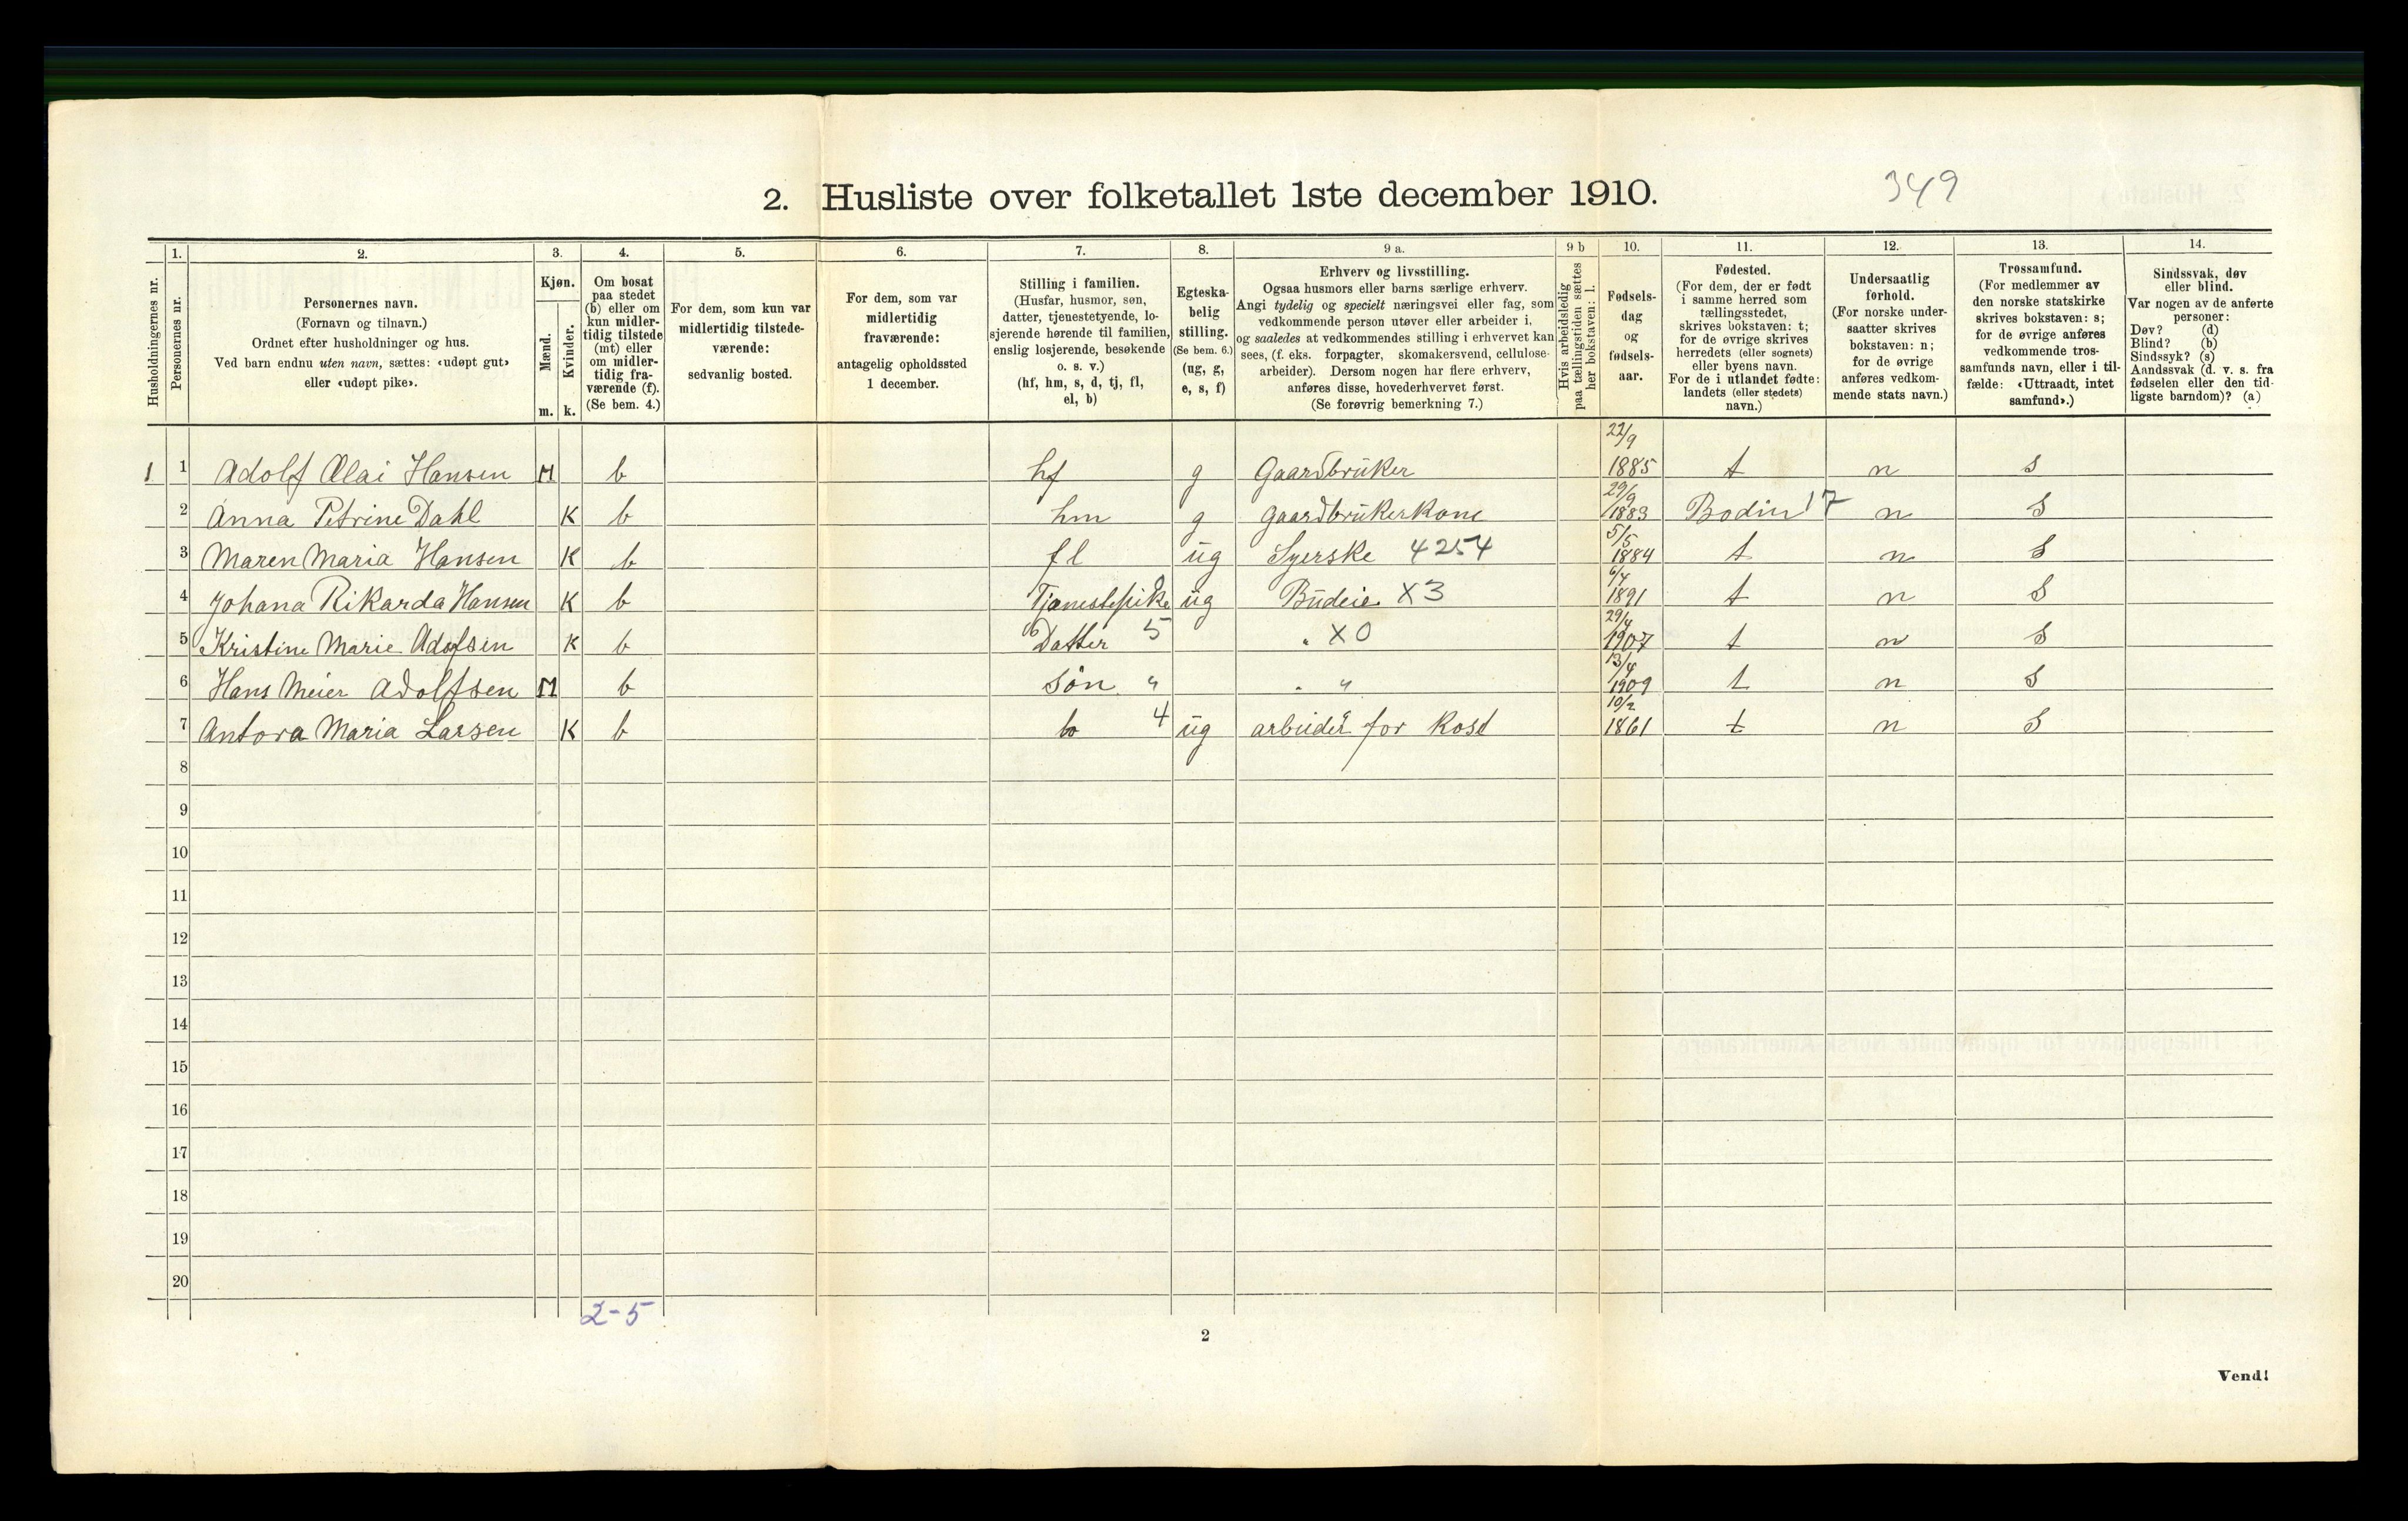 349
2. Husliste over folketallet 1ste december 1910.
Husholdningernes nr.
1. Personernes nr.
2. Personernes navn.
(Fornavn og tilnavn.)
Ordnet efter husholdninger og hus.
Ved barn endnu uten navn, sættes: «udøpt gut»
eller «udøpt pike».
3. Kjøn.
Mænd. m.
Kvinder. k.
4. Om bosat
paa stedet
(b) eller om
kun midler-
tidig tilstede
(mt) eller
om midler-
tidig fra-
værende (f).
(Se bem. 4.)
5. For dem, som kun var
midlertidig tilstede-
værende:
sedvanlig bosted.
6. For dem, som var
midlertidig
fraværende:
antagelig opholdssted
1 december.
7. Stilling i familien.
(Husfar, husmor, søn,
datter, tjenestetyende, lo-
sjerende hørende til familien,
enslig losjerende, besøkende
o. s. v.)
(hf, hm, s, d, tj, fl,
el, b)
8. Egteska-
belig
stilling.
(Se bem. 6.)
(ug, g,
e, s, f)
9 a. Erhverv og livsstilling.
Ogsaa husmors eller barns særlige erhverv.
Angi tydelig og specielt næringsvei eller fag, som
vedkommende person utøver eller arbeider i,
og saaledes at vedkommendes stilling i erhvervet kan
sees, (f. eks. forpagter, skomakersvend, cellulose-
arbeider). Dersom nogen har flere erhverv,
anføres disse, hovederhvervet først.
(Se forøvrig bemerkning 7.)
9 b Hvis arbeidsledig
paa tællingstiden sættes
her bokstaven: l.
10. Fødsels-
dag
og
fødsels-
aar.
11. Fødested.
(For dem, der er født
i samme herred som
tællingsstedet,
skrives bokstaven: t;
for de øvrige skrives
herredets (eller sognets)
eller byens navn.
For de i utlandet fødte:
landets (eller stedets)
navn.)
12. Undersaatlig
forhold.
(For norske under-
saatter skrives
bokstaven: n;
for de øvrige
anføres vedkom-
mende stats navn.)
13. Trossamfund.
(For medlemmer av
den norske statskirke
skrives bokstaven: s;
for de øvrige anføres
vedkommende tros-
samfunds navn, eller i til-
fælde: «Uttraadt, intet
samfund».)
14. Sindssvak, døv
eller blind.
Var nogen av de anførte
personer:
Døv? (d)
Blind? (b)
Sindssyk? (s)
Aandssvak (d. v. s. fra
fødselen eller den tid-
ligste barndom)? (a)
1 1 Adolf Olai Hansen M b hf g Gaardbruker 22/9 1885 t n s
2 Anna Petrine Dahl K b hm g Gaardbrukerkone 29/9 1883 Bodin 17 n s
3 Maren Maria Hansen K b fl ug Syerske 4254 5/5 1884 t n s
4 Johana Rikarda Hansen K b Tjenestepike ug Budeie X3 6/4 1891 t n s
5 Kristine Marie Adolfsen K b Datter 5 " X0 29/4 1907 t n s
6 Hans Meier Adolfsen M b Søn " " " 13/4 1909 t n s
7 Antora Maria Larsen K b 4 ug arbeider for Kost 10/2 1861 t n s
8
9
10
11
12
13
14
15
16
17
18
19
20
2-5
2
Vend!